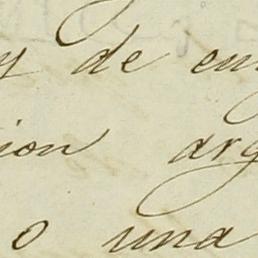 y de
ion arg
o una